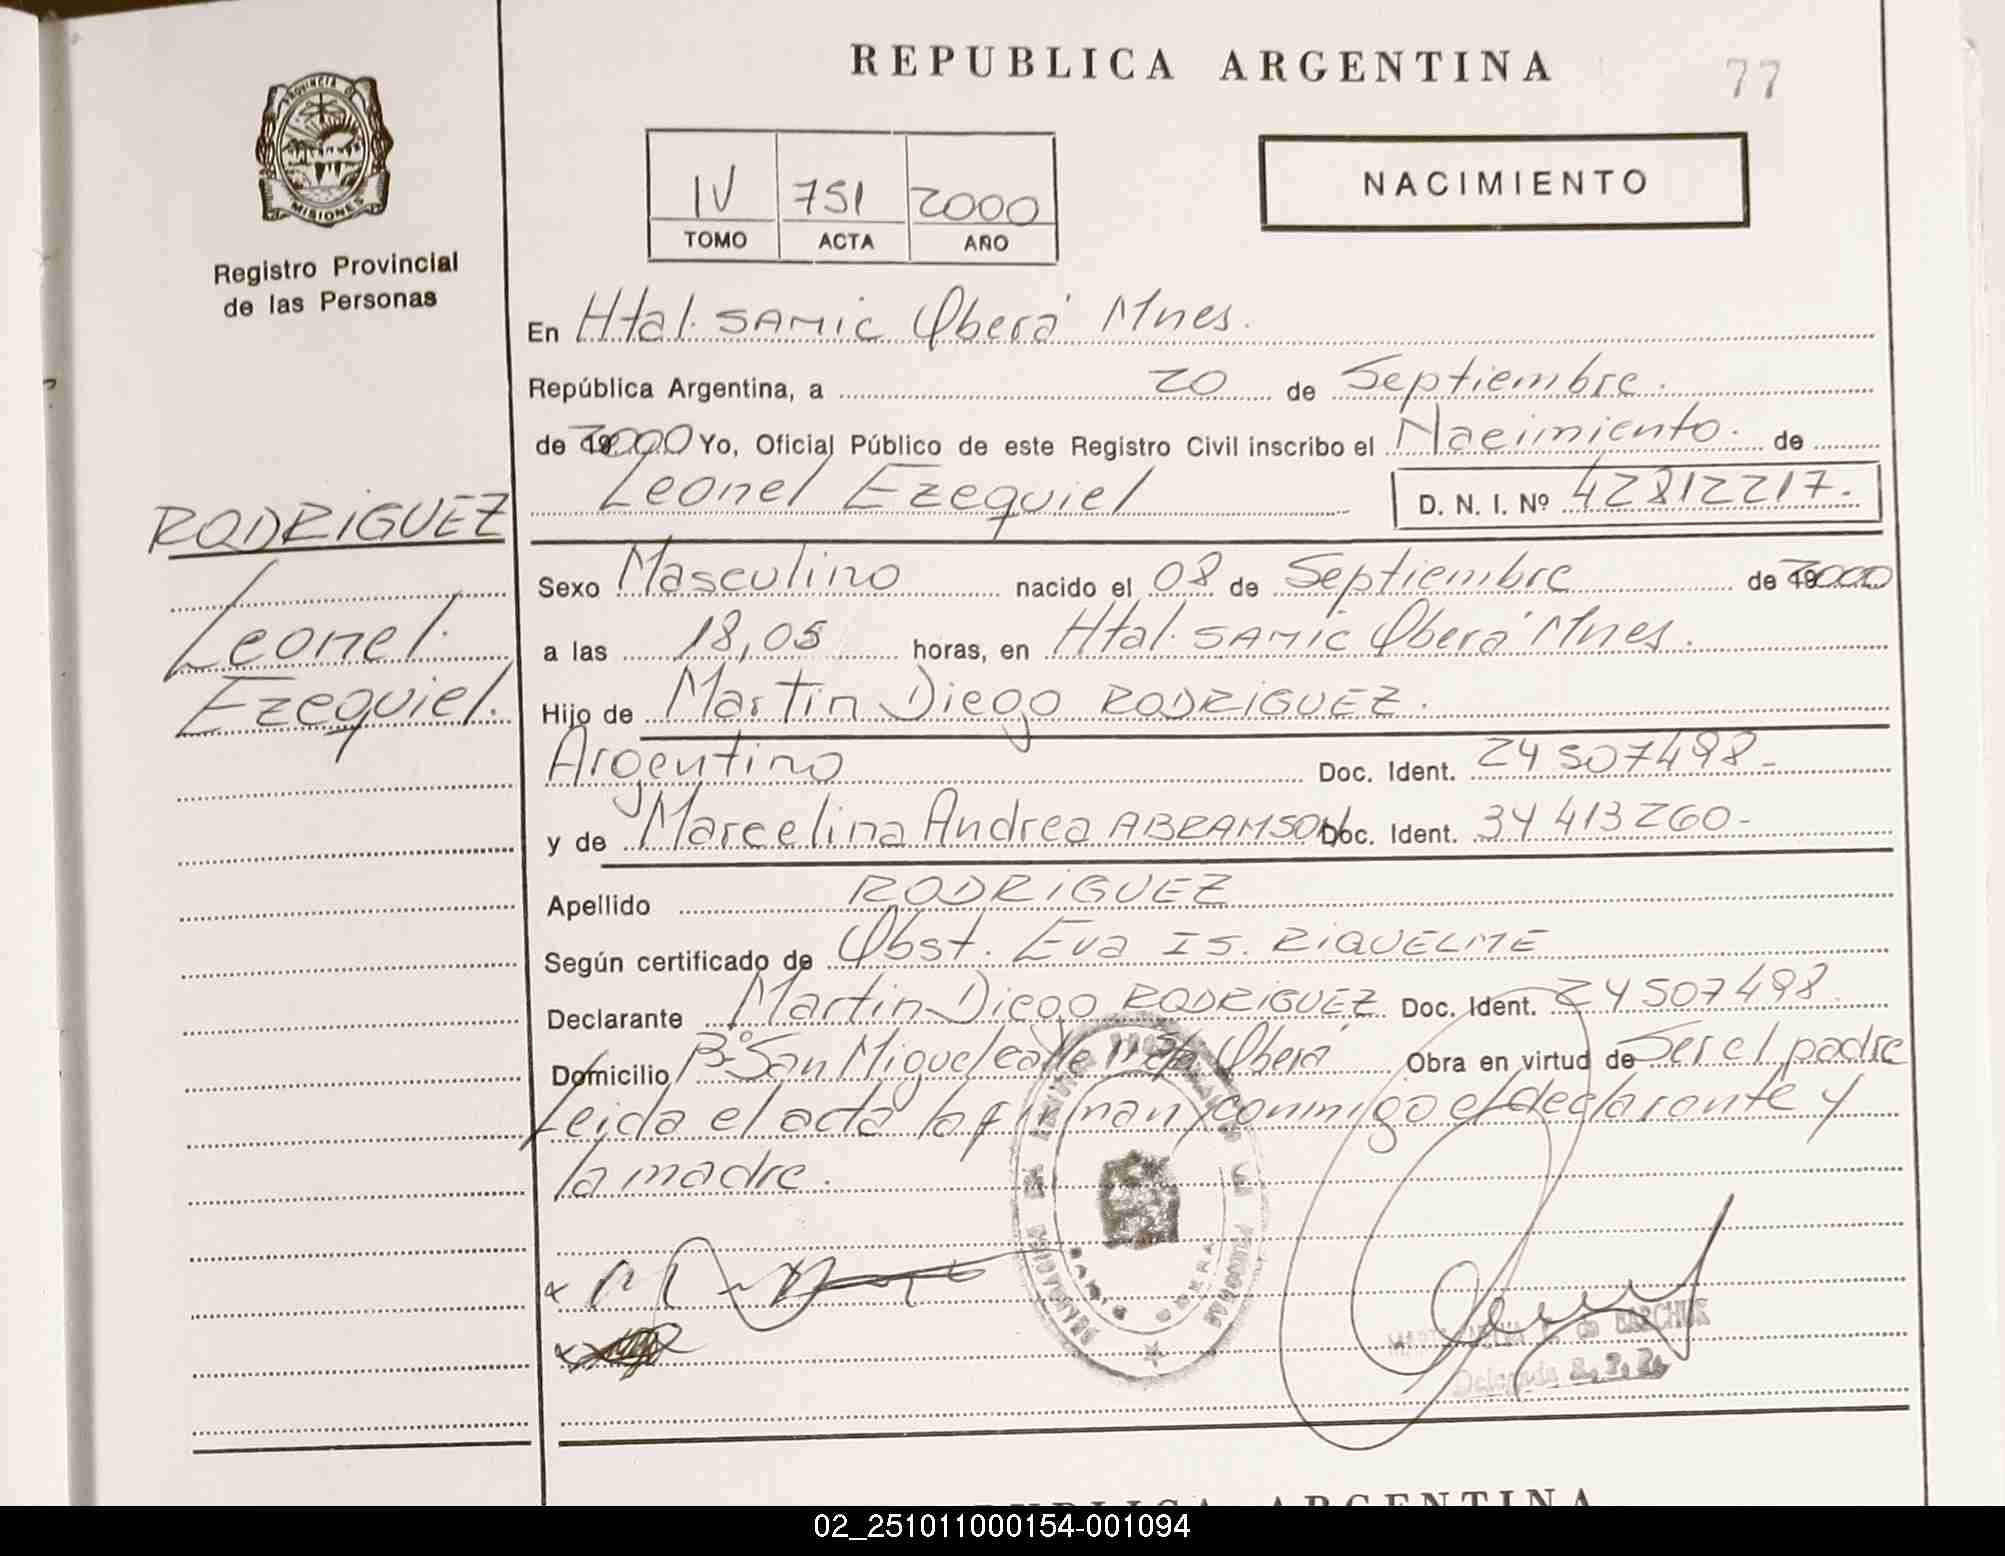 REPUBLICA ARGENTINA
77
PROVINCIA DE
MISIONES
Registro Provincial
de las Personas
IV 751 2000
TOMO ACTA AÑO
NACIMIENTO
En Htal. SAMIC Oberá Mnes.
República Argentina, a 20 de Septiembre.
de 2000 Yo, Oficial Público de este Registro Civil inscribo el Nacimiento. de
Leonel Ezequiel D. N. I. Nº 42812217.-
RODRIGUEZ
Leonel.
Ezequiel.
Sexo Masculino nacido el 08 de Septiembre de 2000
a las 18,05 horas, en Htal. SAMIC Oberá Mnes.
Hijo de Martin Diego RODRIGUEZ.
Argentino Doc. Ident. 24507498-
y de Marcelina Andrea ABRAMSON Doc. Ident. 34413260-
Apellido RODRIGUEZ
Según certificado de Obst. Eva IS. RIQUELME
Declarante Martin Diego RODRIGUEZ Doc. Ident. 24507498
Domicilio Bº San Miguel calle Oberá Obra en virtud de Ser el padre
Leida el acta la firman conmigo el declarante y
la madre.
de BARCHUK
Delegada R. P. P.
REPUBLICA ARGENTINA
02_251011000154-001094